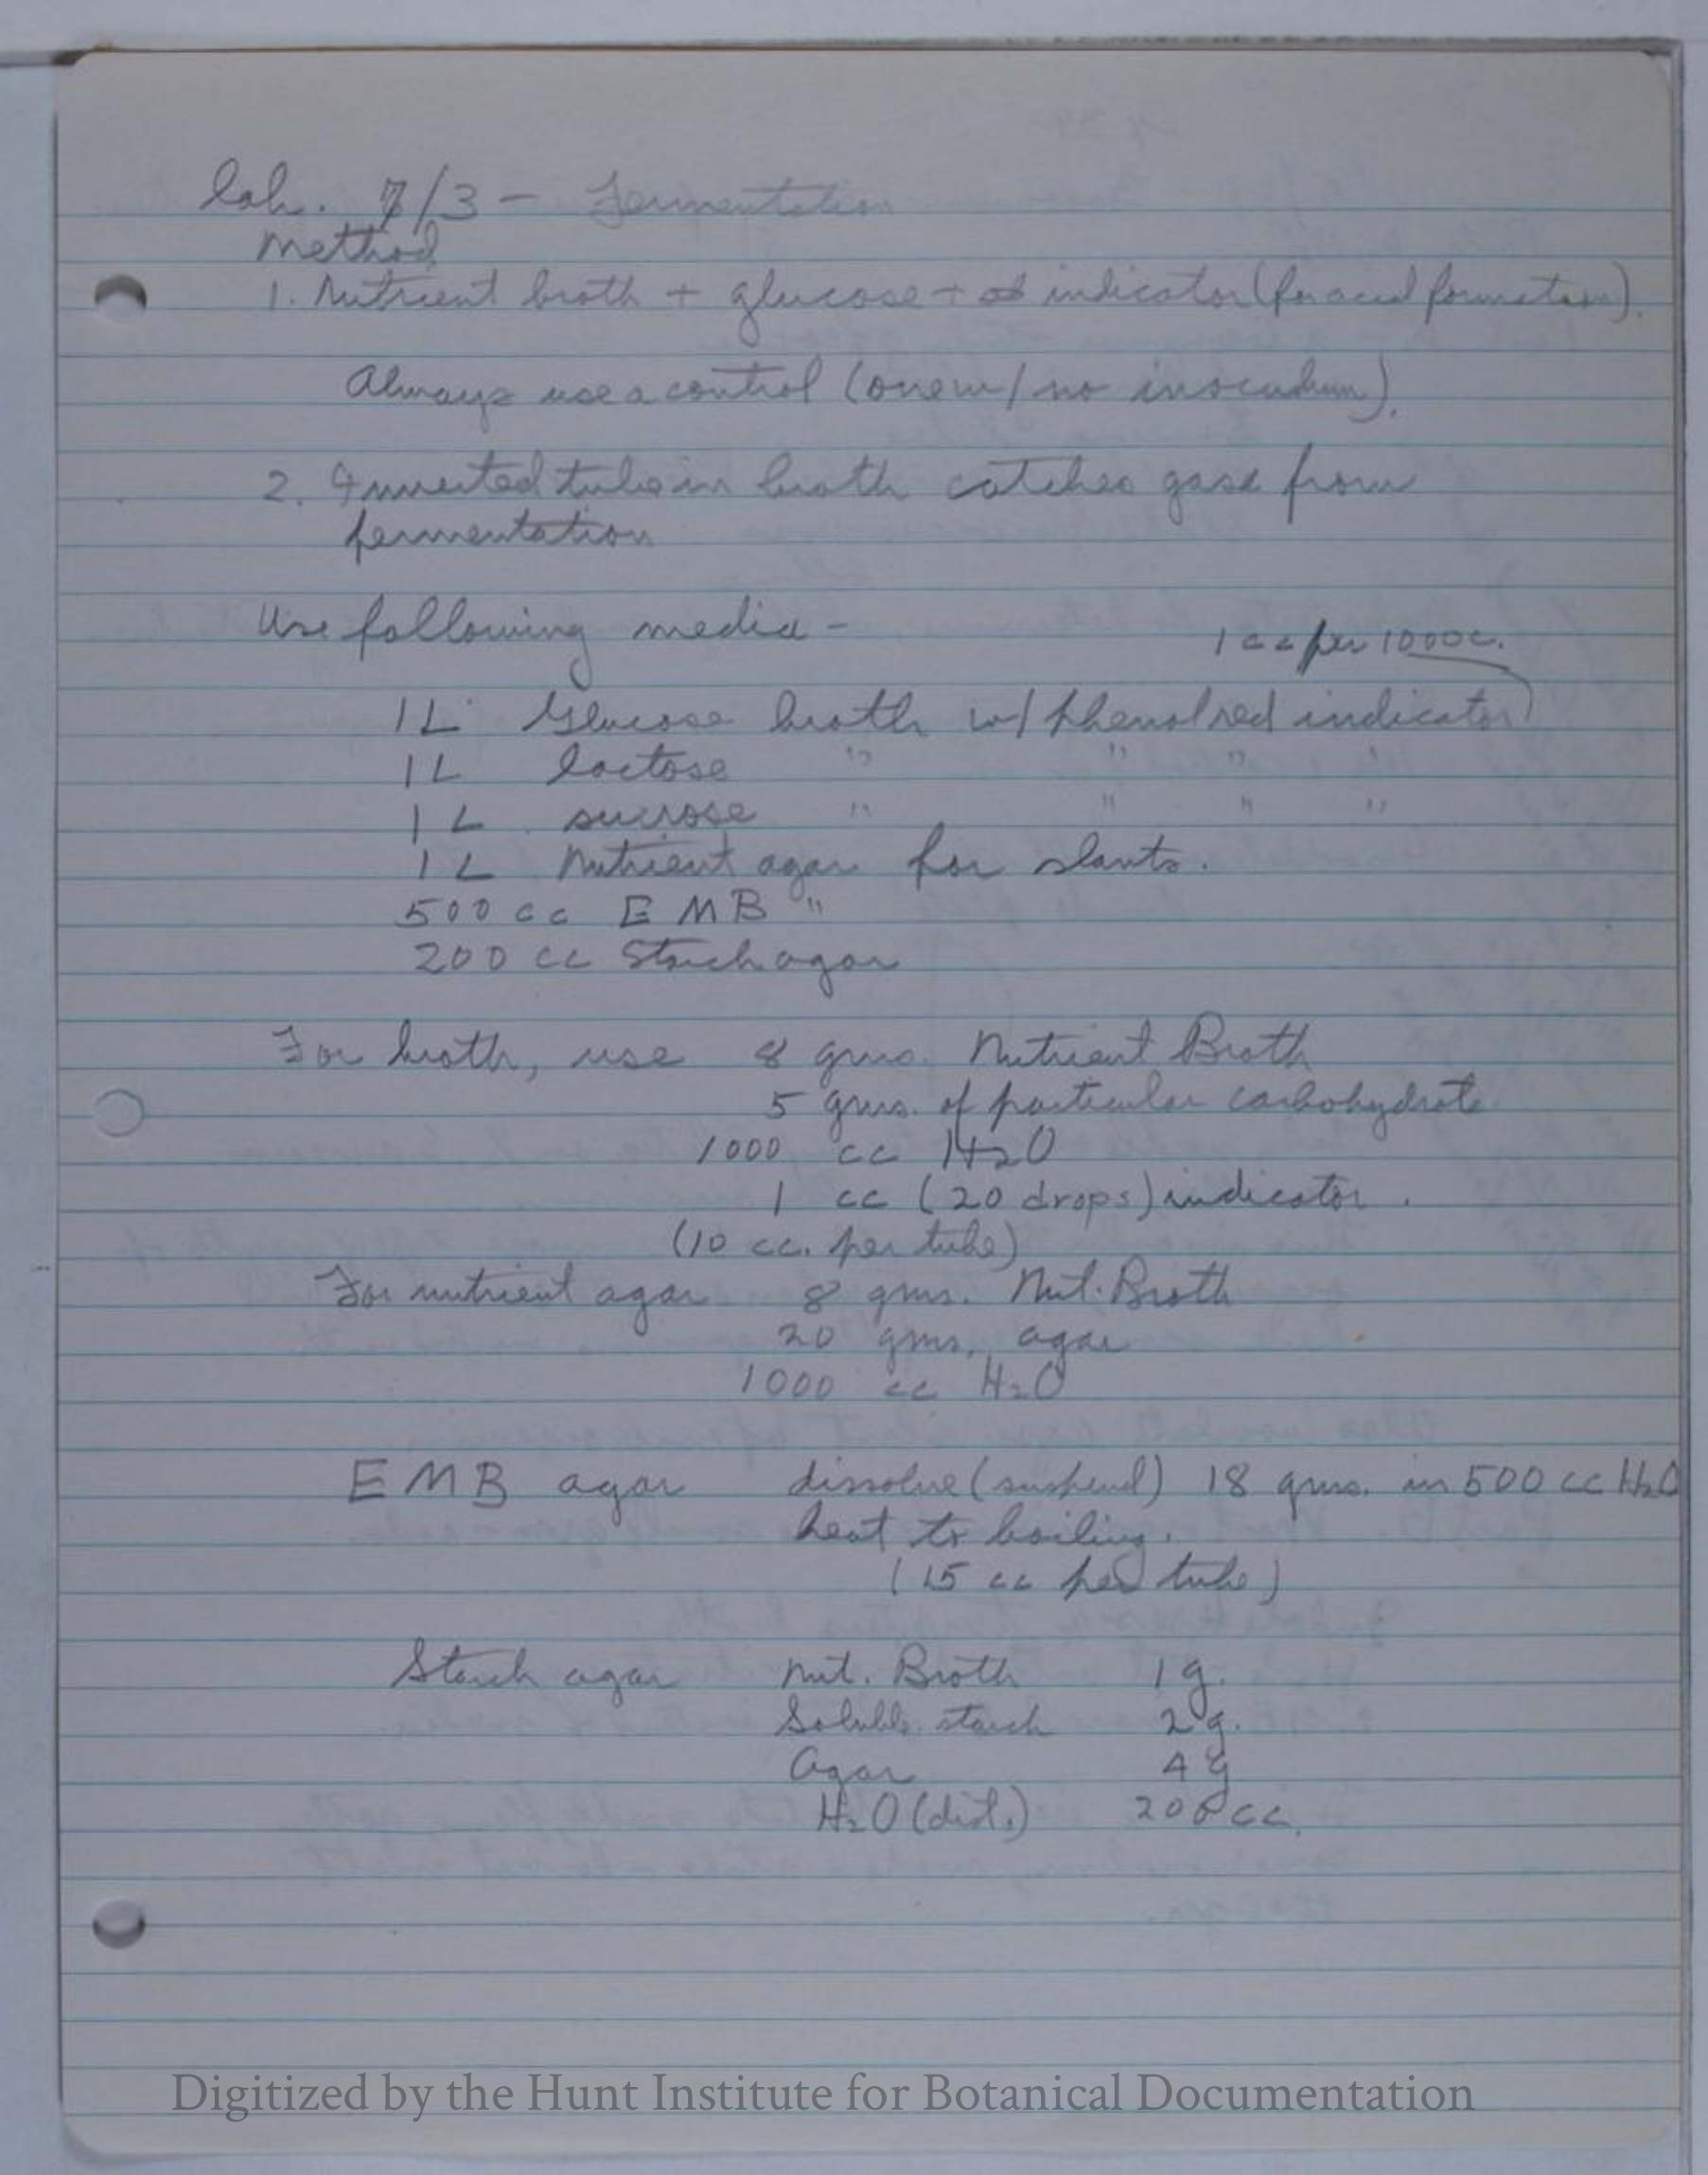 Lab. 7/3 - Fermentation
Method
1. Nutrient broth + glucose + indicator (for acid formation).
Always use a control (one w/ no inoculum).
2. Inverted tube in broth catches gas from
fermentation
Use following media -
1 cc per 1000 c.
1 L Glucose broth w/ phenol red indicator
1 L lactose " " " "
1 L sucrose " " " "
1 L Nutrient agar for slants.
500 cc EMB "
200 cc Starch agar
For broth, use 8 gms. Nutrient Broth
5 gms. of particular carbohydrate
1000 cc H2O
1 cc (20 drops) indicator.
(10 cc. per tube)
For nutrient agar 8 gms. Nut. Broth
20 gms. agar
1000 cc H2O
EMB agar dissolve (suspend) 18 gms. in 500 cc H2O
heat to boiling.
(15 cc per tube)
Starch agar Nut. Broth 1 g.
Soluble starch 2 g.
Agar 4 g
H2O (dist.) 200 cc.
Digitized by the Hunt Institute for Botanical Documentation